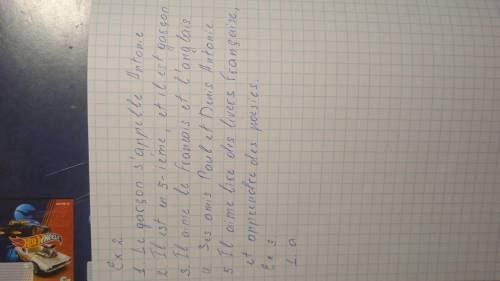 Ex 2
1. Le garçon s'appelle Antonie
2. Il est en 5-ième, et il est garçon
3. Il aime le Français et l'anglais
4. Ses amis Paul et Denis Antonie
5. Il aime lire des livers Française,
et apprendre des poésies.
Ex 3
1. a
HOT WHEELS